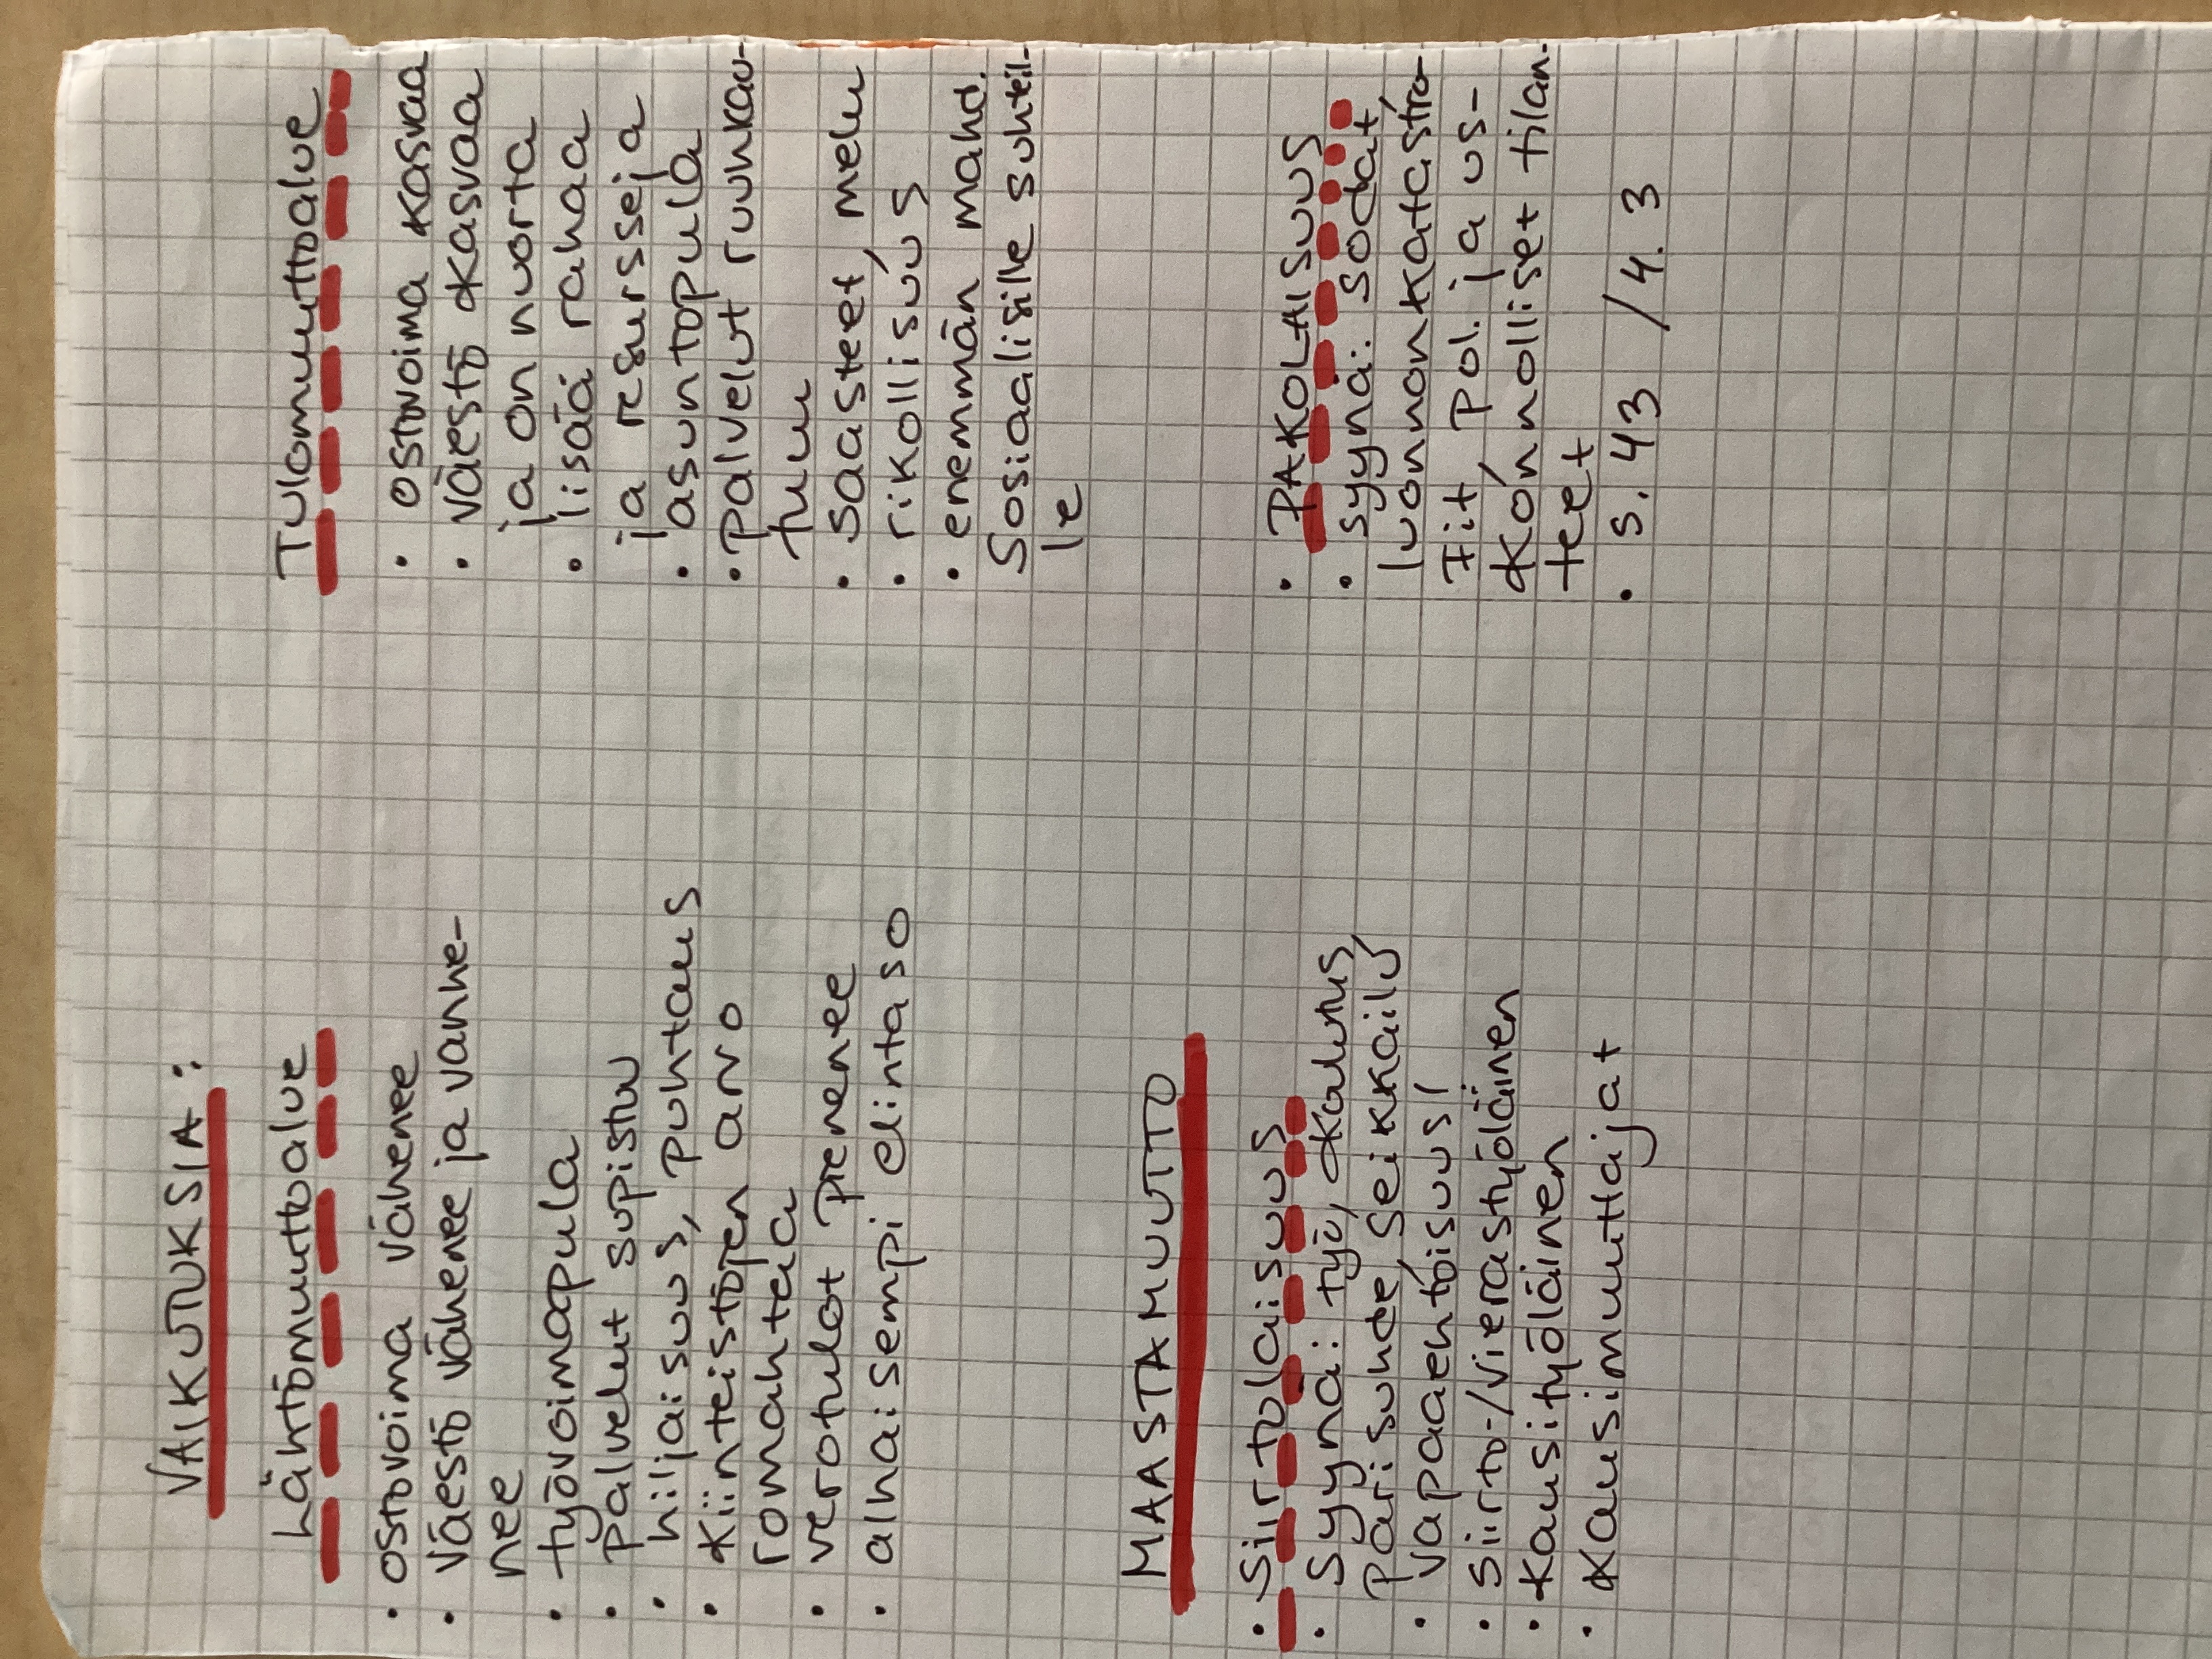 VAIKUTUKSIA:
Lähtömuuttoalue
• ostovoima vähenee
• väestö vähenee ja vanhe-
nee
• työvoimapula
• palvelut supistuu
• hiljaisuus, puhtaus
• kiinteistöjen arvo
romahtaa
• verotulot pienenee
• alhaisempi elintaso
Tulomuuttoalue
• ostovoima kasvaa
• väestö kasvaa
ja on nuorta
• lisää rahaa
ja resursseja
• asuntopula
• palvelut ruuhkau-
tuu
• saasteet, melu
• rikollisuus
• enemmän mahd.
sosiaalisille suhteil-
le
MAASTAMUUTTO
• Siirtolaisuus
• Syynä: työ, koulutus,
parisuhde, seikkailu
• vapaaehtoisuus!
• siirto-/vierastyöläinen
• kausityöläinen
• kausimuuttajat
• PAKOLAISUUS
• syynä: sodat,
luonnonkatastro-
fit, pol. ja us-
konnolliset tilan-
teet
• s. 43 /4.3